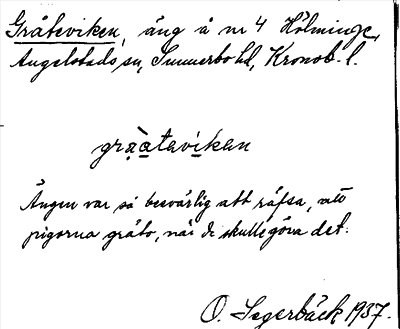 Gråteviken, äng å nr 4 Hölminge,
Angelstads sn, Sunnerbo hd, Kronob. l.
gra̱àa̱tavi̱kan
Ängen var så besvärlig att räfsa, att
pigorna gräto, när de skulle göra det.
O. Segerbäck 1937.